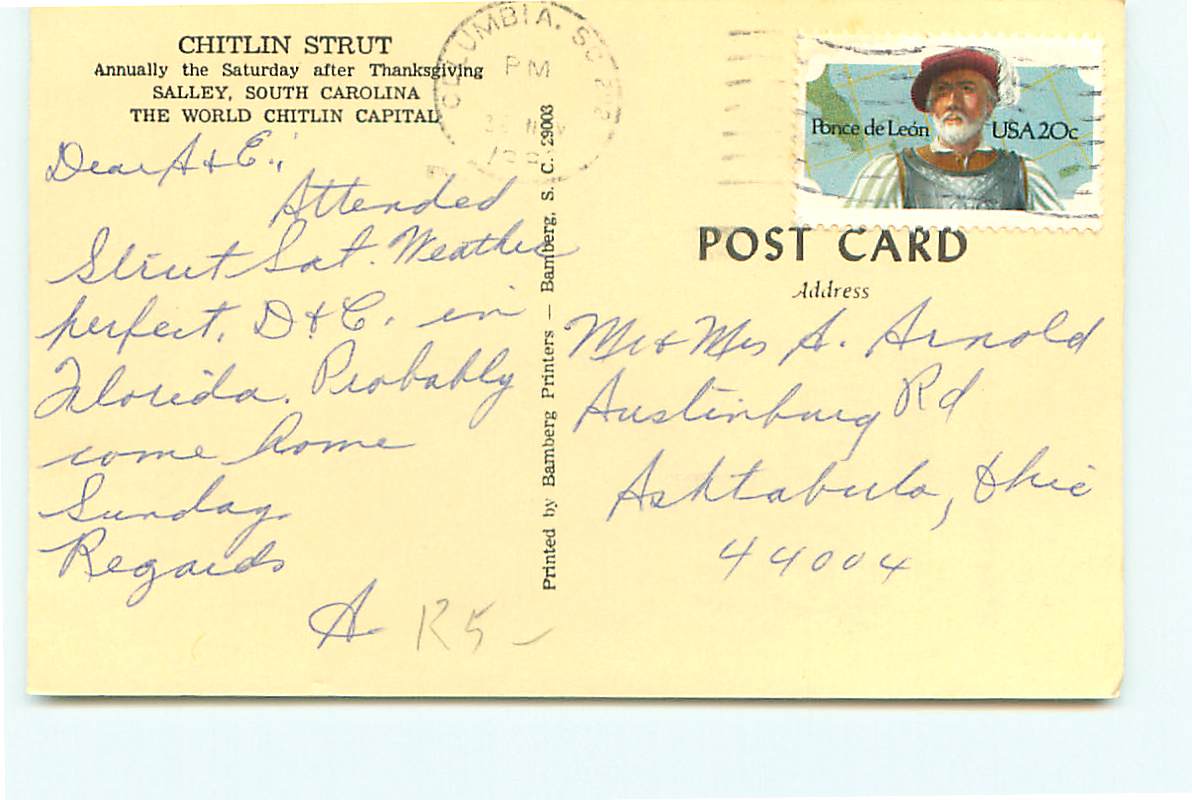 CHITLIN STRUT
Annually the Saturday after Thanksgiving
SALLEY, SOUTH CAROLINA
THE WORLD CHITLIN CAPITAL
Dear A & E.,
Attended
Strut Sat. Weather
perfect. D & C. in
Florida. Probably
come home
Sunday.
Regards
A
R5-
Printed by Bamberg Printers — Bamberg, S. C. 29003
COLUMBIA, SC 292
PM
NOV
Ponce de León USA 20c
POST CARD
Address
Mr & Mrs A. Arnold
Austinburg Rd
Ashtabula, Ohio
44004